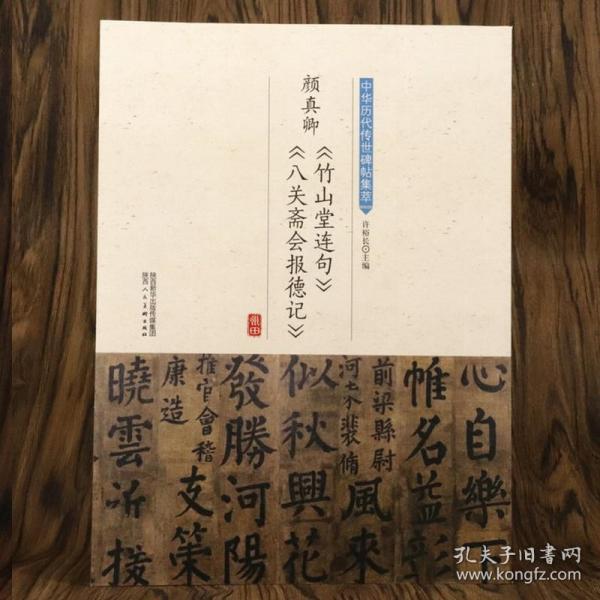 中华历代传世碑帖集萃
许裕长⊙主编
《竹山堂连句》
颜真卿
《八关斋会报德记》
陕西新华出版传媒集团
陕西人民美术出版社
心自樂
帷名益彰
前梁縣尉
河東裴脩
風來
似秋興花
發勝河陽
推官會稽
康造
支策
曉雲近接
孔夫子旧书网
www.kongfz.com